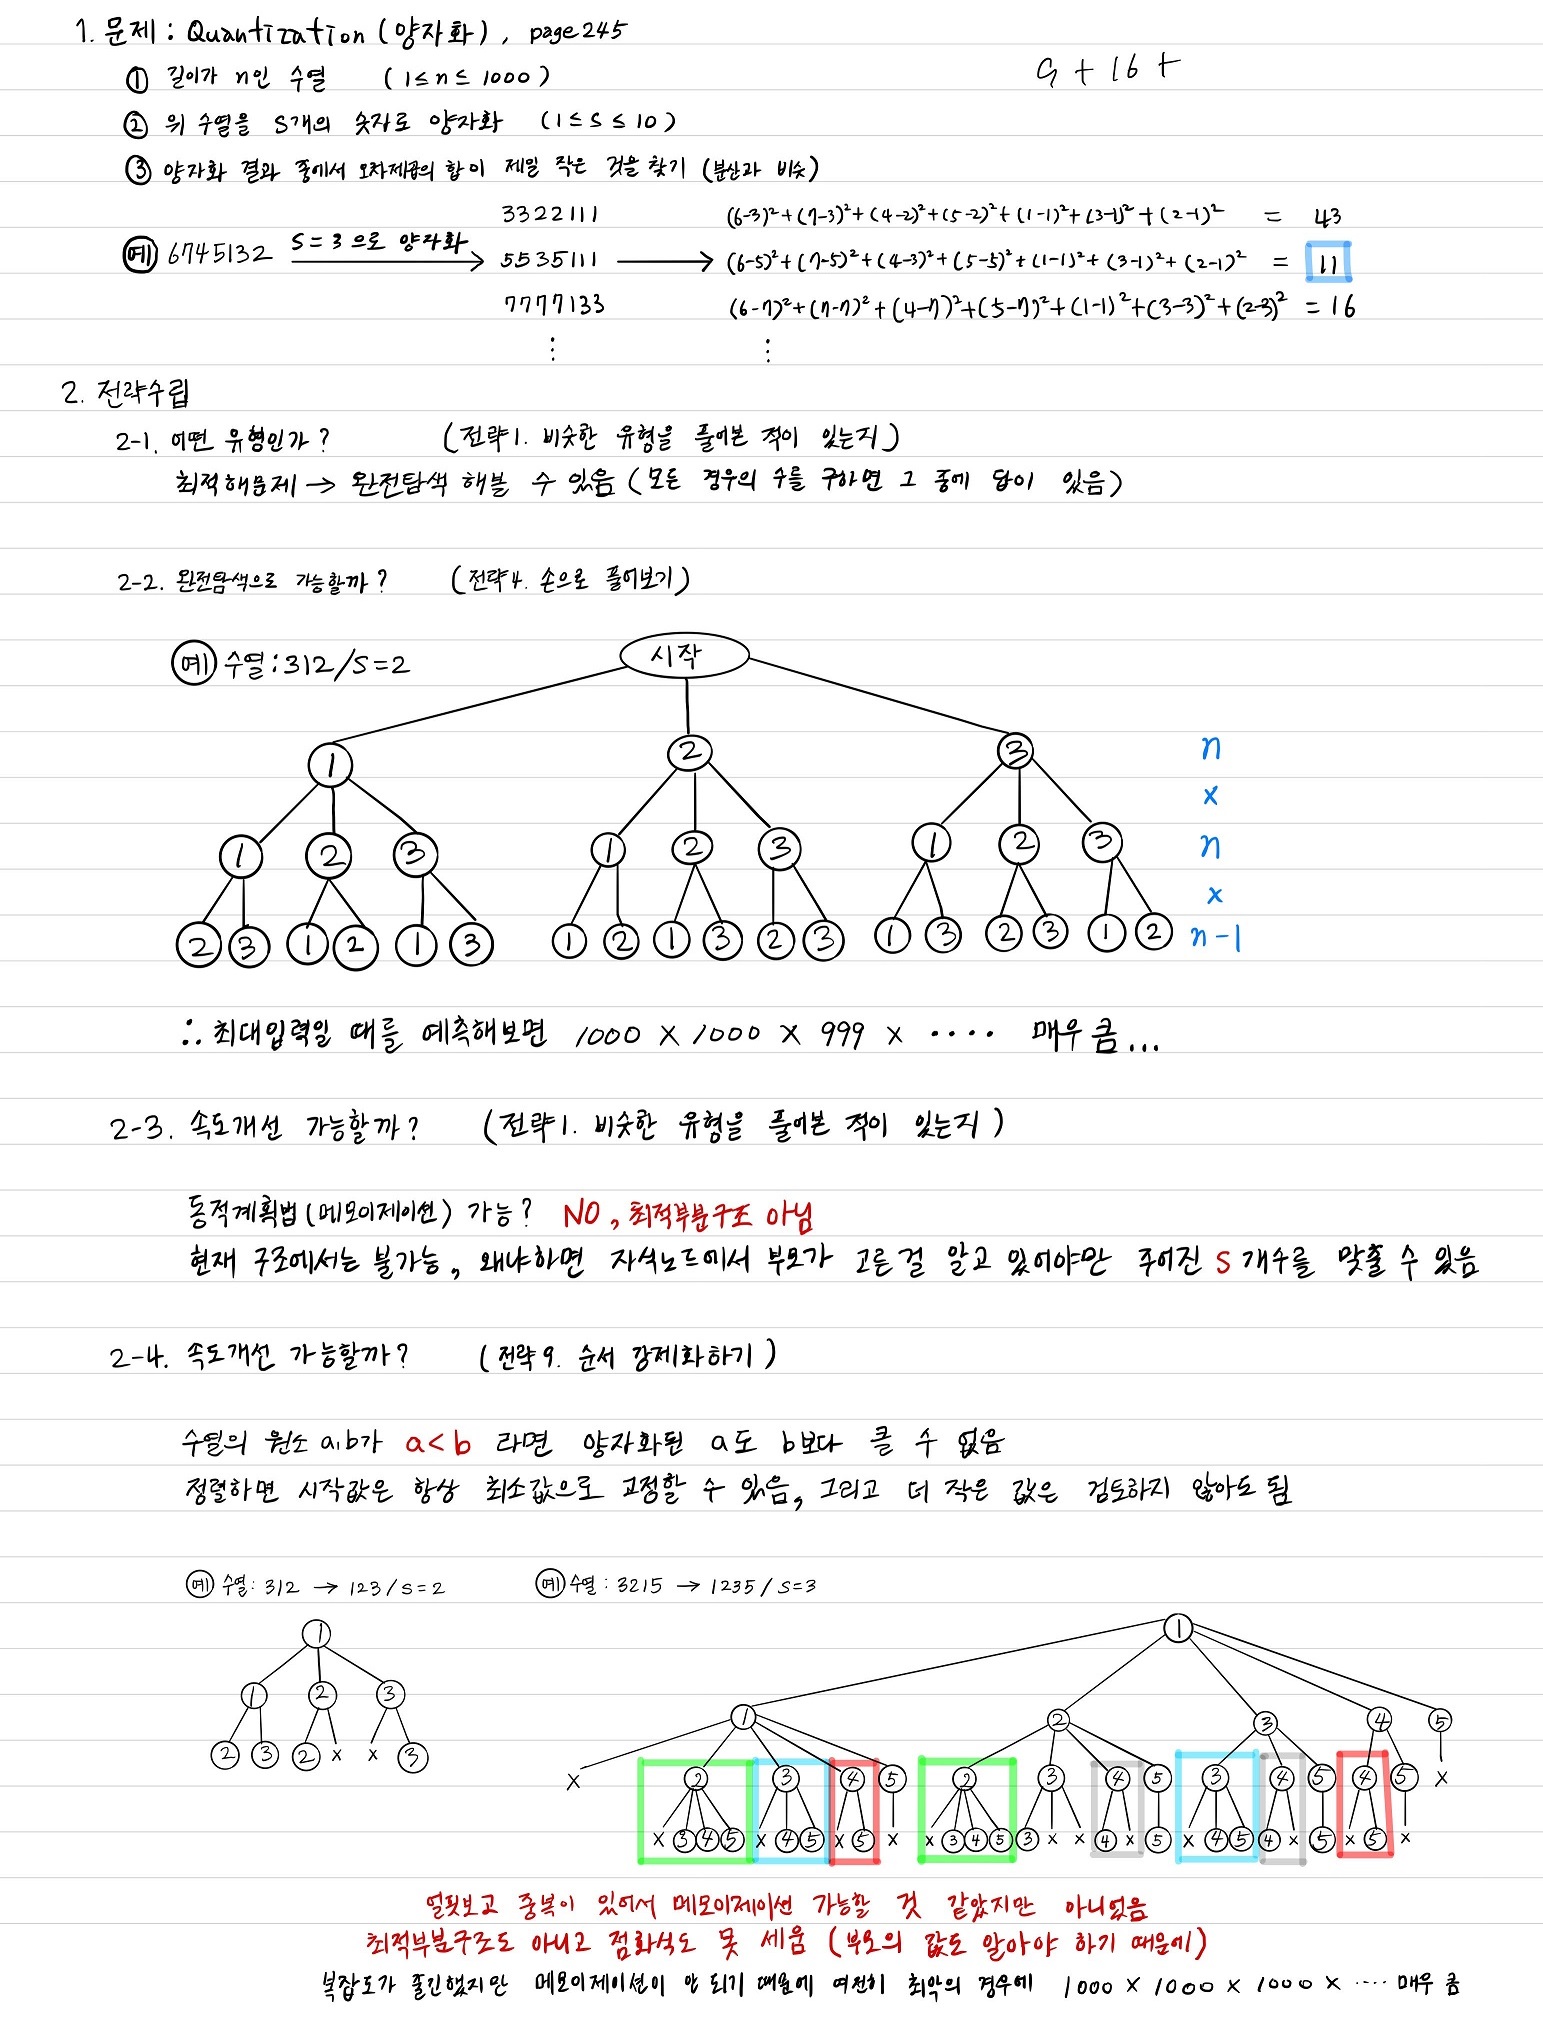 1. 문제 : Quantization (양자화) , page 245
① 길이가 n인 수열 ( 1 ≤ n ≤ 1000 )
9 + 16 +
② 위 수열을 S개의 숫자로 양자화 ( 1 ≤ S ≤ 10 )
③ 양자화 결과 중에서 오차제곱의 합이 제일 작은 것을 찾기 (분산과 비슷)
3322111 (6-3)²+(7-3)²+(4-2)²+(5-2)²+(1-1)²+(3-1)²+(2-1)² = 43
예 6745132 S=3으로 양자화 → 5535111 → (6-5)²+(7-5)²+(4-3)²+(5-5)²+(1-1)²+(3-1)²+(2-1)² = 11
7777133 (6-7)²+(7-7)²+(4-7)²+(5-7)²+(1-1)²+(3-3)²+(2-3)² = 16
⋮ ⋮
2. 전략수립
2-1. 어떤 유형인가? (전략1. 비슷한 유형을 풀어본 적이 있는지)
최적해문제 → 완전탐색 해볼 수 있음 (모든 경우의 수를 구하면 그 중에 답이 있음)
2-2. 완전탐색으로 가능할까? (전략4. 손으로 풀어보기)
예 수열:312/S=2
시작
1 2 3 n
x
1 2 3 1 2 3 1 2 3 n
x
2 3 1 2 1 3 1 2 1 3 2 3 1 3 2 3 1 2 n-1
∴ 최대입력일 때를 예측해보면 1000 X 1000 X 999 X ···· 매우 큼...
2-3. 속도개선 가능할까? (전략1. 비슷한 유형을 풀어본 적이 있는지)
동적계획법(메모이제이션) 가능? NO, 최적부분구조 아님
현재 구조에서는 불가능, 왜냐하면 자식노드에서 부모가 고른걸 알고 있어야만 주어진 S 개수를 맞출 수 있음
2-4. 속도개선 가능할까? (전략9. 순서 강제화하기)
수열의 원소 a,b가 a<b 라면 양자화된 a도 b보다 클 수 없음
정렬하면 시작값은 항상 최소값으로 고정할 수 있음, 그리고 더 작은 값은 검토하지 않아도 됨
예 수열: 312 → 123/S=2 예 수열: 3215 → 1235/S=3
1
1 2 3
2 3 2 x x 3
1
1 2 3 4 5
x 2 3 4 5 2 3 4 5 3 4 5 4 5 x
x 3 4 5 x 4 5 x 5 x x 3 4 5 3 x x 4 x 5 x 4 5 4 x 5 x 5 x
얼핏보고 중복이 있어서 메모이제이션 가능할 것 같았지만 아니었음
최적부분구조도 아니고 점화식도 못 세움 (부모의 값도 알아야 하기 때문에)
복잡도가 줄긴했지만 메모이제이션이 안 되기 때문에 여전히 최악의 경우에 1000 X 1000 X 1000 X ···· 매우 큼